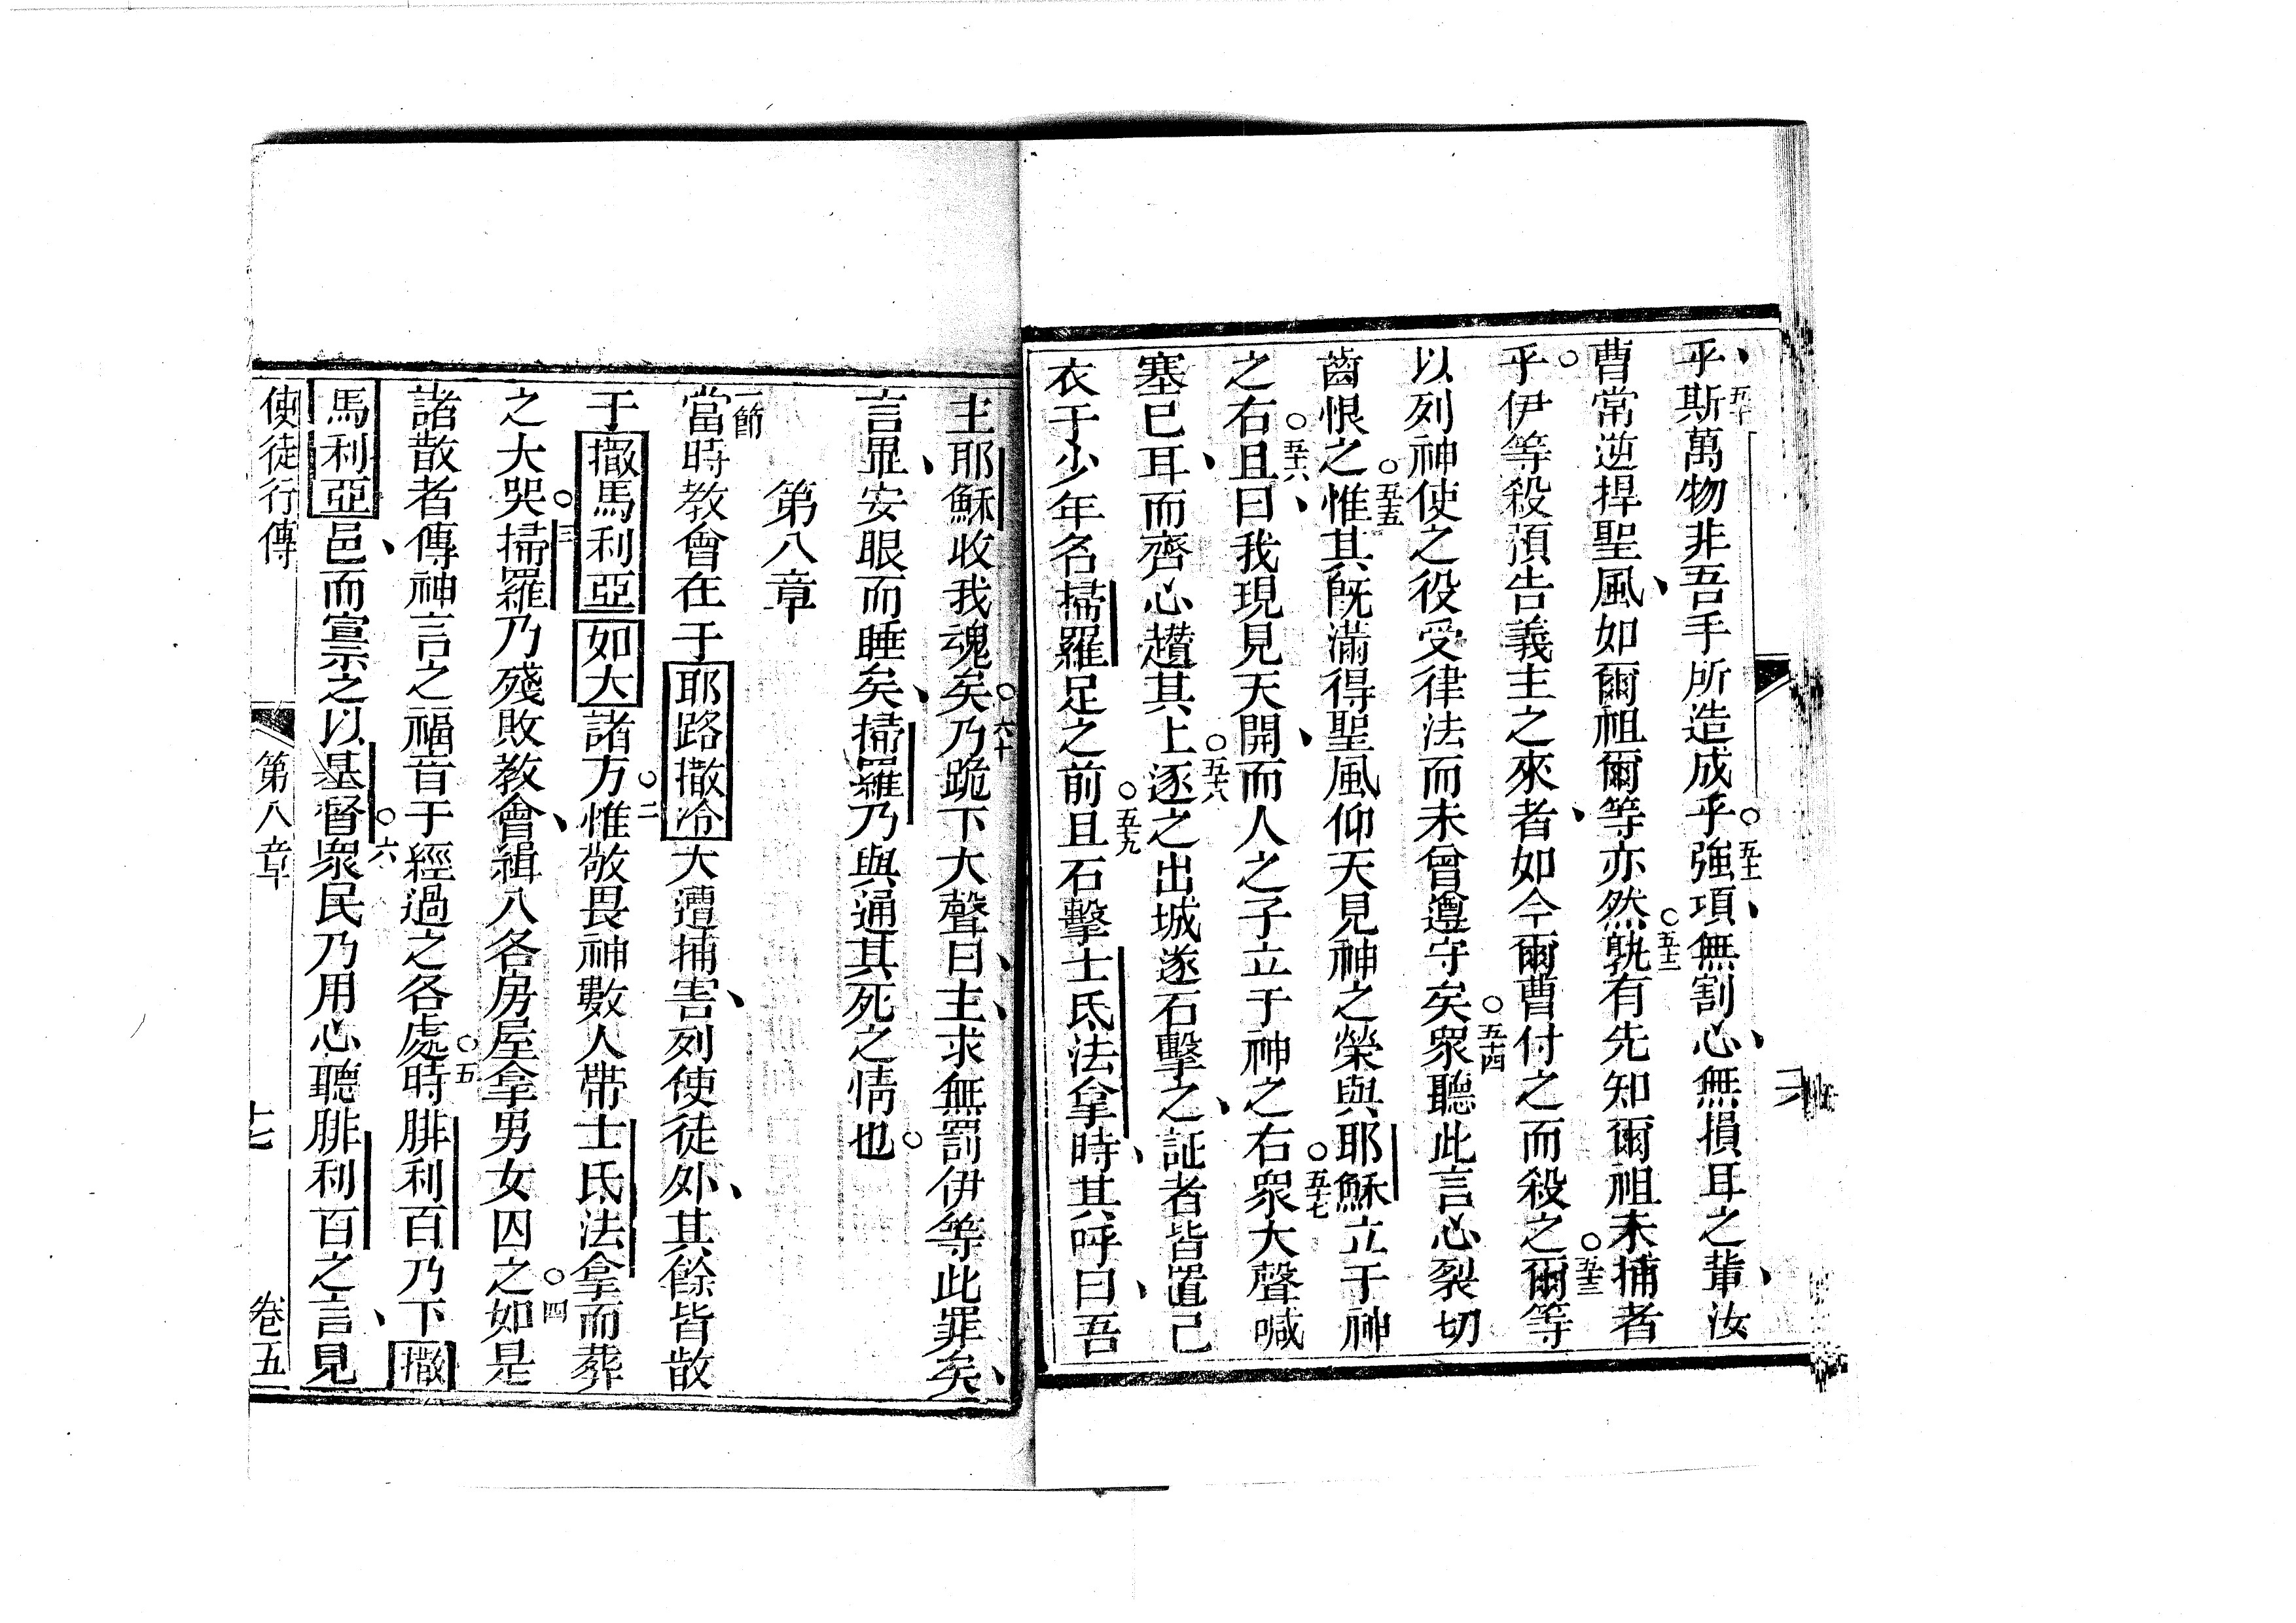 乎、五十斯萬物非吾手所造成乎○五十一強項、無割心、無損耳之輩、汝
曹常逆捍聖風、如爾祖爾等亦然○五十二孰有先知爾祖未捕者
乎○伊等殺預告義主之來者、如今爾曹付之而殺之○五十三爾等
以列神使之役受律法而未曾遵守矣○五十四眾聽此言心裂切
齒恨之○五十五惟其既滿得聖風仰天見神之榮與耶穌立于神
之右○五十六且曰、我現見天開、而人之子立于神之右○五十七眾大聲喊
塞已耳、而齊心趲其上○五十八逐之出城遂石擊之、証者皆置己
衣于少年名掃羅足之前○五十九且石擊士氐法拿時、其呼曰、吾
主耶穌收我魂矣○六十乃跪下大聲曰、主、求無罰伊等此罪矣、
言畢、安眼而睡矣、掃羅乃與通其死之情也○
第八章
一節當時教會在于耶路撒冷大遭捕害、列使徒外、其餘皆散
于撒馬利亞如大諸方○二惟敬畏神數人帶士氐法拿而葬
之大哭○三掃羅乃殘敗教會、緝入各房屋拿男女囚之○四如是
諸散者傳神言之福音于經過之各處○五時腓利百乃下撒
馬利亞邑、而宣示之以基督○六眾民乃用心聽腓利百之言、見
使徒行傳 第八章 十七 卷五